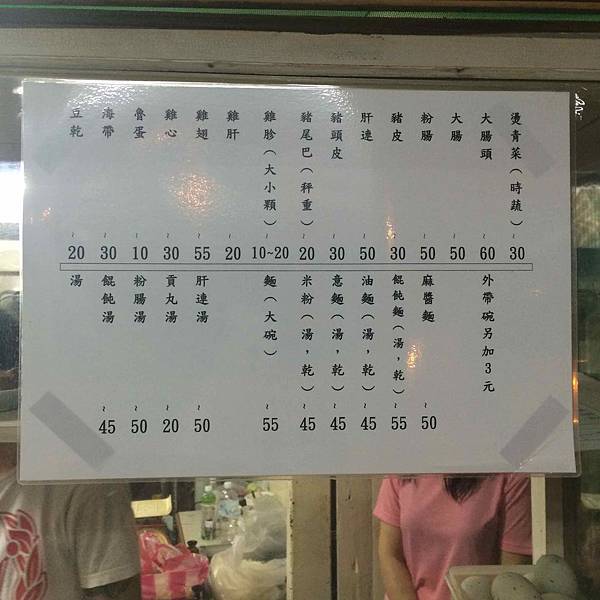 燙青菜（時蔬）~30
大腸頭~60
大腸~50
粉腸~50
豬皮~30
肝連~50
豬頭皮~30
豬尾巴（秤重）~20
雞胗（大小顆）~10~20
雞肝~20
雞翅~55
雞心~30
魯蛋~10
海帶~30
豆乾~20
外帶碗另加3元
麻醬麵~50
餛飩麵（湯，乾）~55
油麵（湯，乾）~45
意麵（湯，乾）~45
米粉（湯，乾）~45
麵（大碗）~55
肝連湯~50
貢丸湯~20
粉腸湯~50
餛飩湯~45
湯